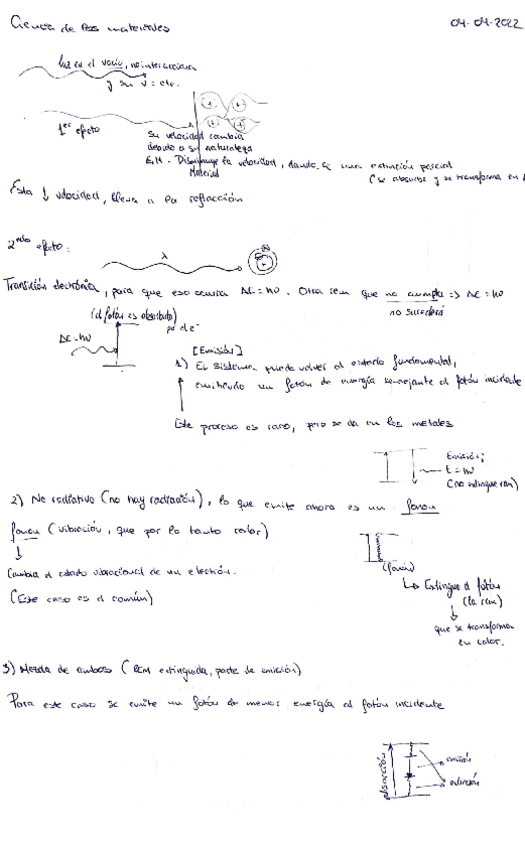 Ciencia de los materiales
04-04-2022
luz en el vacío, no interacciona
y su v = cte.
1er efecto
su velocidad cambia
debido a su naturaleza
E.M. Disminuye la velocidad, dando se una extinción parcial
Material
(se absorbe y se transforma en
Esta ↓ velocidad, lleva a la refracción
2ndo efecto:
λ
Transición electrónica, para que eso ocurra ΔE = hν. Otra rem que no cumpla => ΔE = hν
no sucederá
(el fotón es absorbido)
por el e-
ΔE = hν
[Emisión]
1) El sistema puede volver al estado fundamental,
emitiendo un fotón de energía semejante al fotón incidente
Este proceso es raro, pero se da en los metales
Emisión;
E = hν
(no extingue rem)
2) No radiativo (no hay radiación), lo que emite ahora es un fonón
fonón (vibración, que por lo tanto calor)
(fonón)
Cambia el estado vibracional de un electrón.
Extingue el fotón
(la rem)
(Este caso es el común)
que se transforma
en calor.
3) Mezcla de ambos (REM extinguida, parte de emisión)
Para este caso se emite un fotón de menor energía al fotón incidente
absorción
emisión
extinción